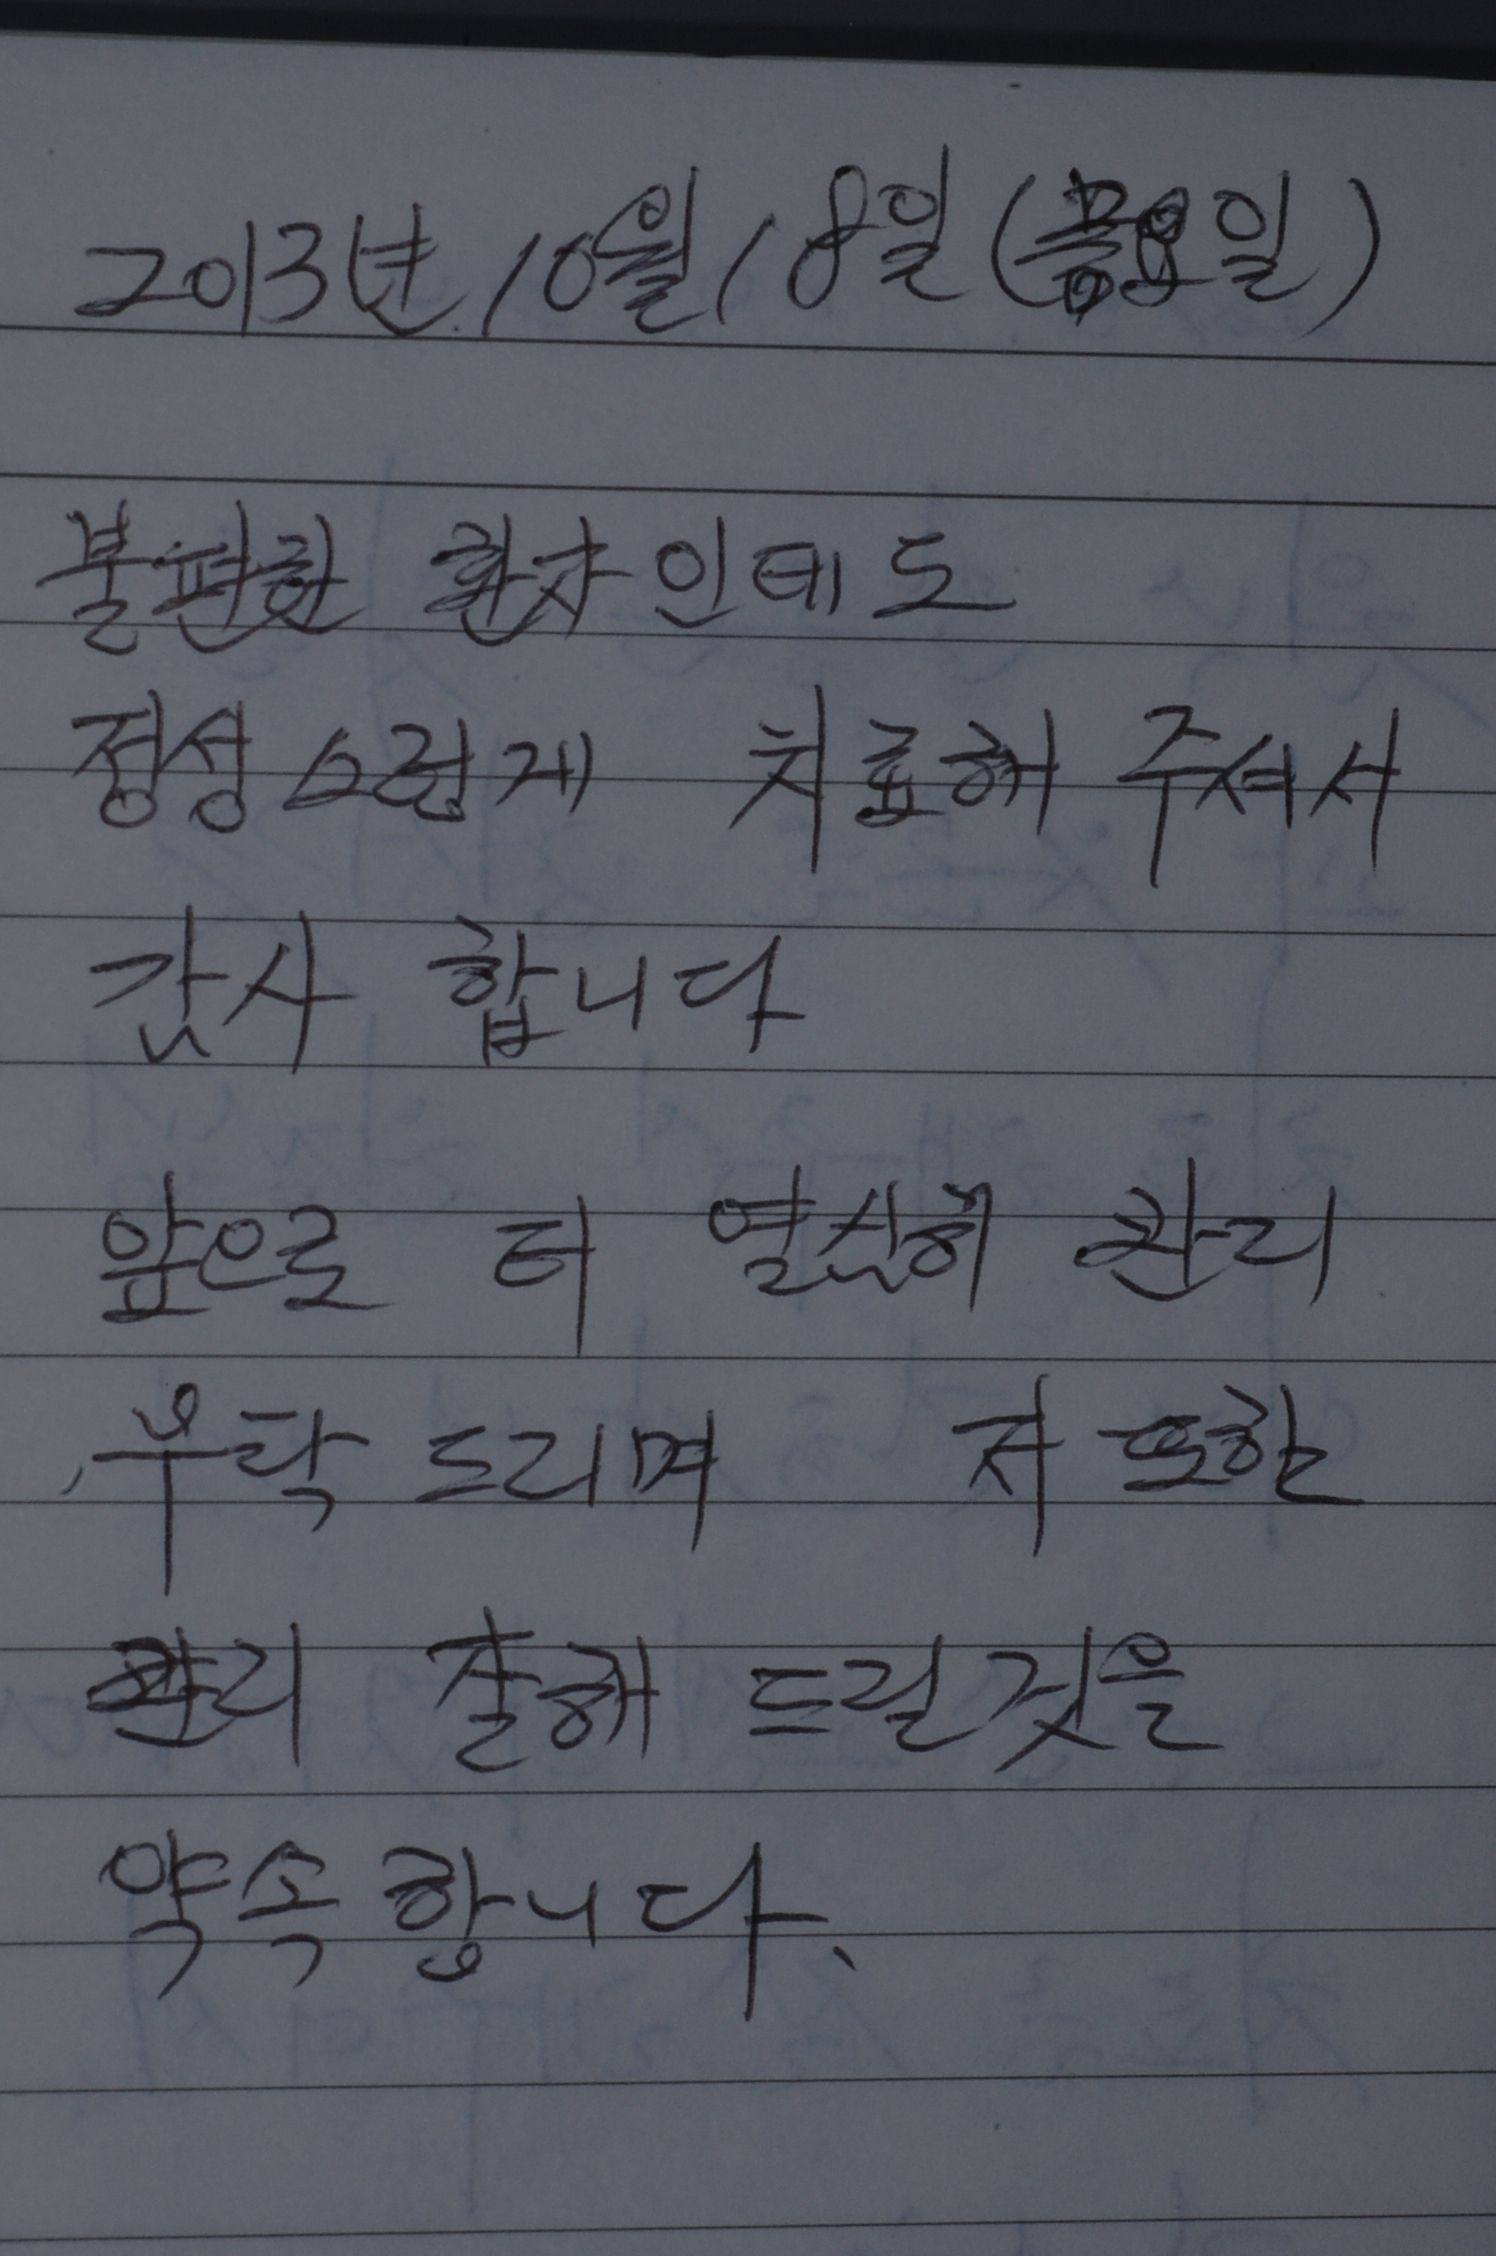 2013년 10월 18일 (금요일)
불편한 환자인데도
정성스럽게 치료해 주셔서
감사 합니다
앞으로 더 열심히 관리
부탁 드리며 저 또한
관리 잘해 드릴것을
약속 합니다.